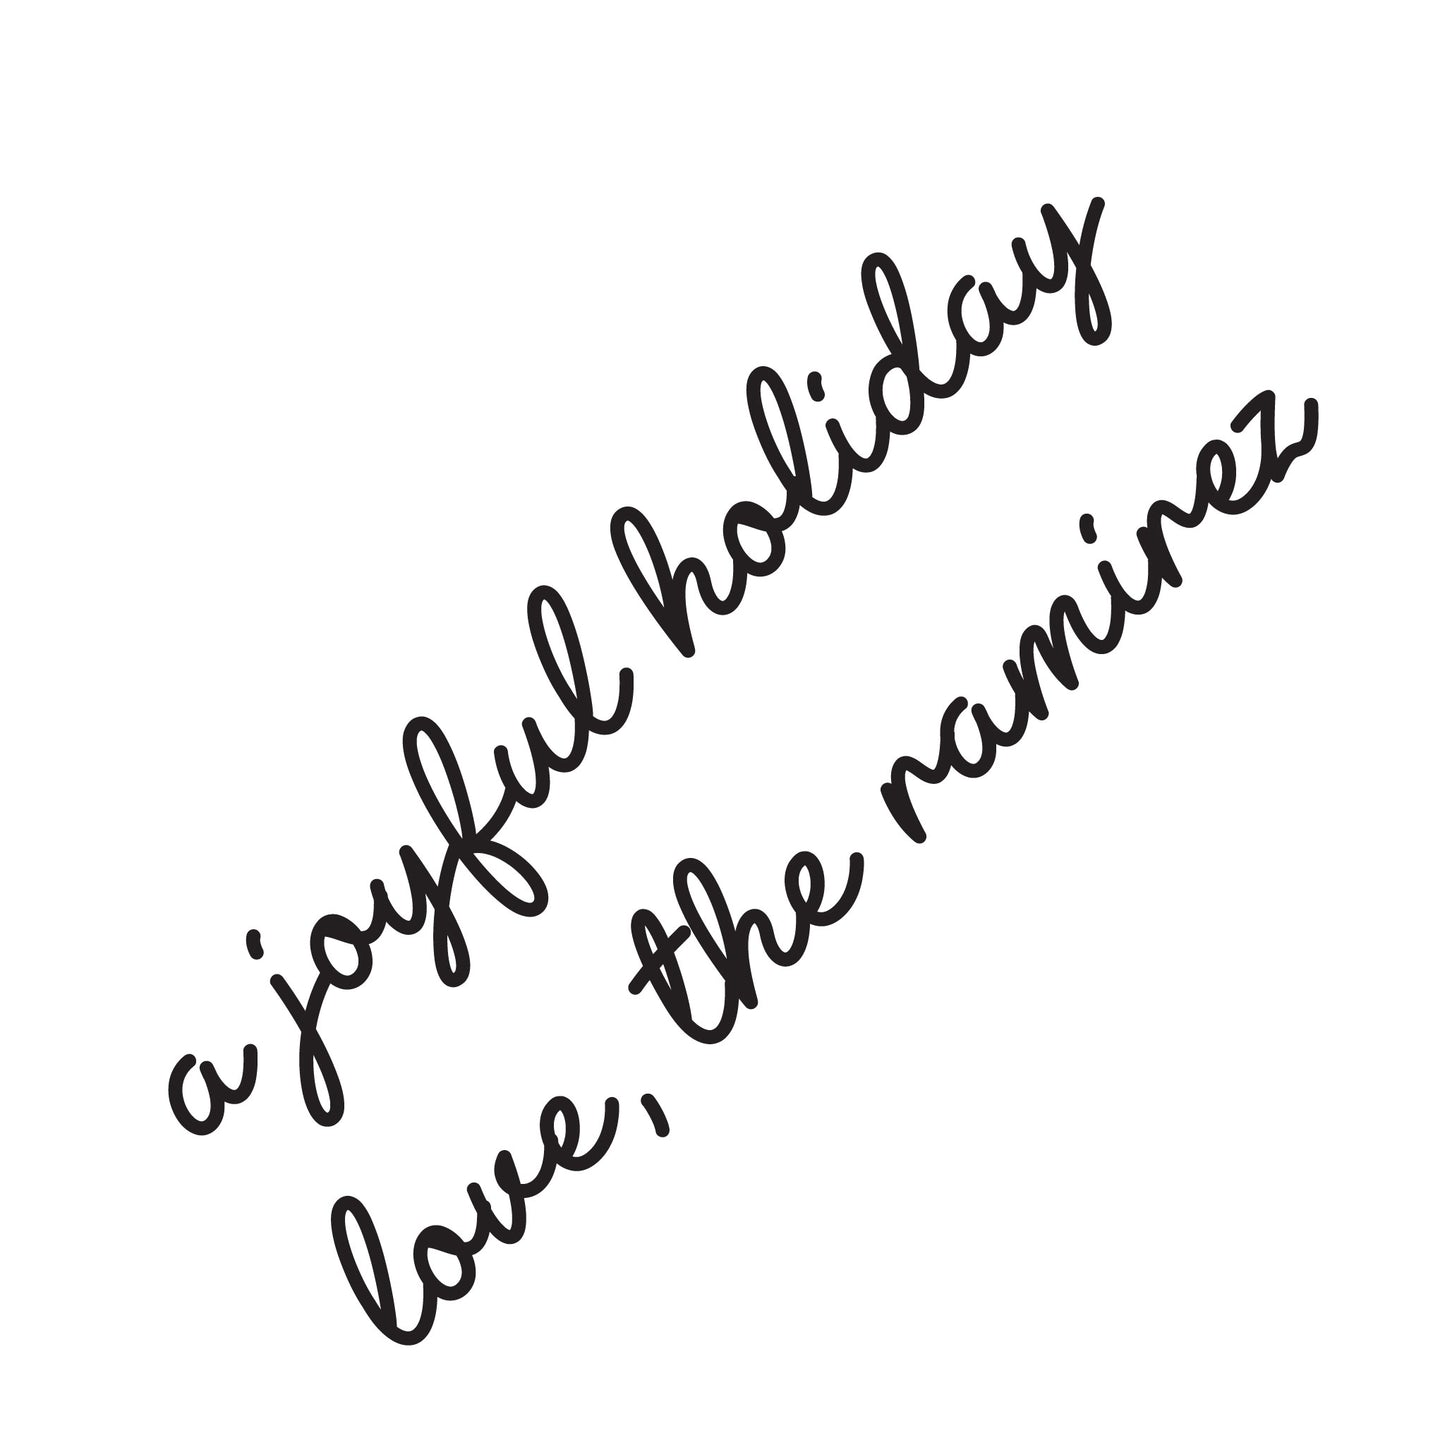 a joyful holiday
love, the raminez